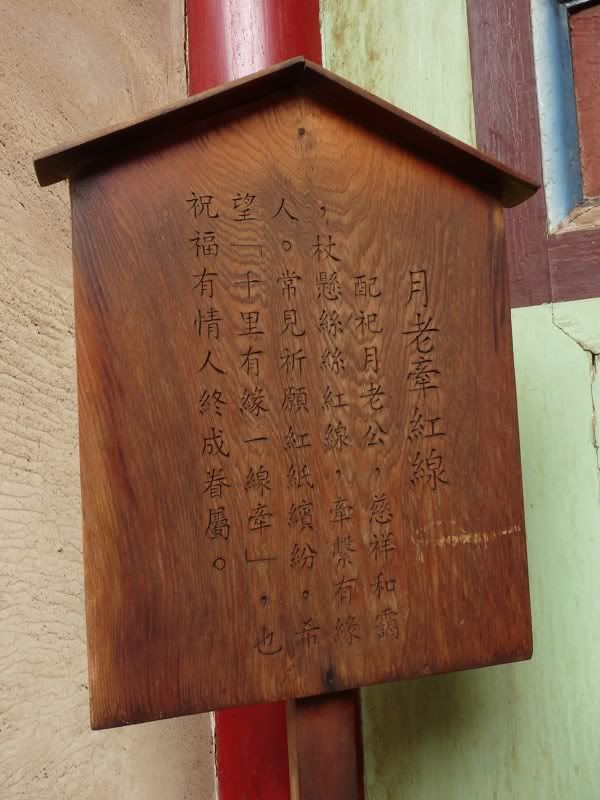 月老牽紅線
配祀月老公，慈祥和靄
，杖懸絲絲紅線，牽繫有緣
人。常見祈願紅紙繽紛。希
望「千里有緣一線牽」，也
祝福有情人終成眷屬。